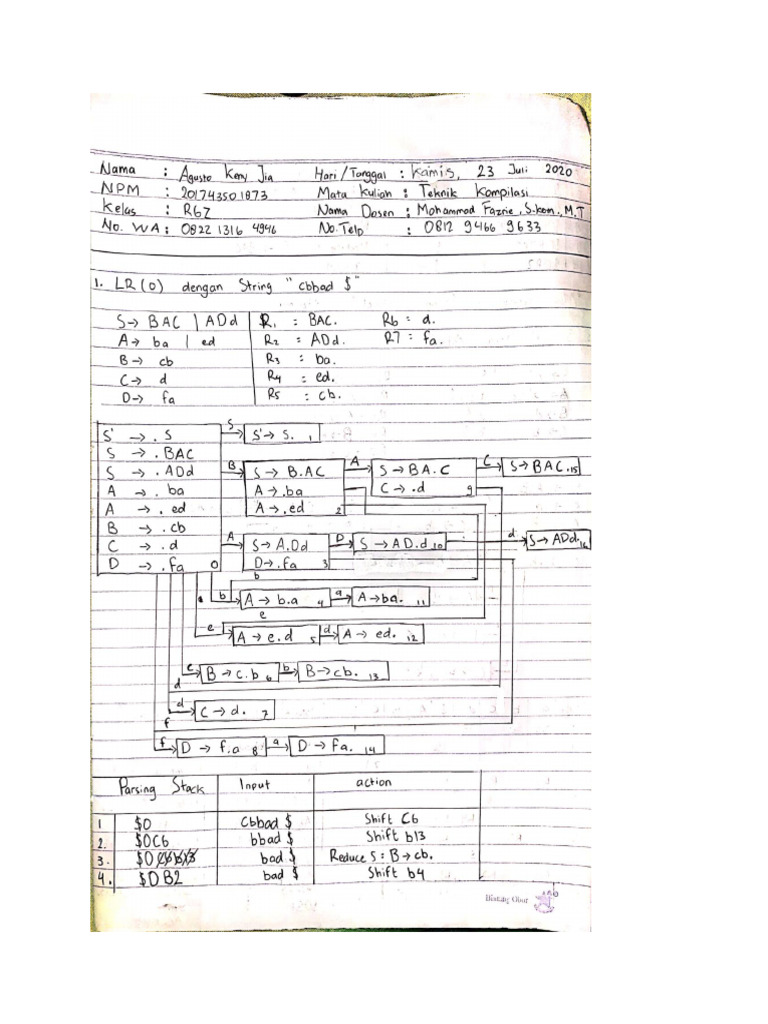 Nama : Agusto Keny Jia Hari / Tanggal : Kamis, 23 Juli 2020
NPM : 201743501873 Mata Kuliah : Teknik Kompilasi
Kelas : R6Z Nama Dosen : Mohammad Fazrie, S.kom., M.T
No. WA : 0822 1316 4946 No. Telp : 0812 9466 9633
1. LR (0) dengan String "cbbad $"
S → BAC | ADd R1 : BAC. R6 : d.
A → ba | ed R2 : ADd. R7 : fa.
B → cb R3 : ba.
C → d R4 : ed.
D → fa R5 : cb.
S' → .S
S → .BAC
S → .ADd
A → .ba
A → .ed
B → .cb
C → .d
D → .fa 0
S
S' → S. 1
B
S → B.AC
A → .ba
A → .ed 2
A
S → BA.C
C → .d 9
C
S → BAC. 15
A
S → A.Dd
D → .fa 3
D
S → AD.d 10
d
S → ADd. 16
b
b
A → b.a 4
a
A → ba. 11
e
e
A → e.d 5
d
A → ed. 12
c
B → c.b 6
b
B → cb. 13
d
d
C → d. 7
f
f
D → f.a 8
a
D → Fa. 14
Parsing Stack Input action
1 $0 Cbbad $ Shift C6
2. $0C6 bbad $ Shift b13
3. $0 bad $ Reduce 5 : B → cb.
4. $0B2 bad $ Shift b4
Bintang Obor